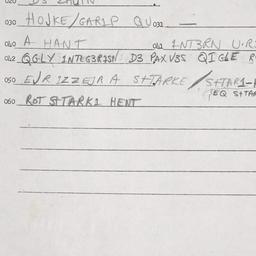 020 D3
030 HOJKE/GARIP QUO31 —
040 A HANT 041 INT3RN
042 QGLY 1NTEG3RISN D3 PAXVSS QIGLE
050 EJR IZZEJR A STTARKE/STTAR1-
TEQ STTAR
060 ROT STTARK1 HENT